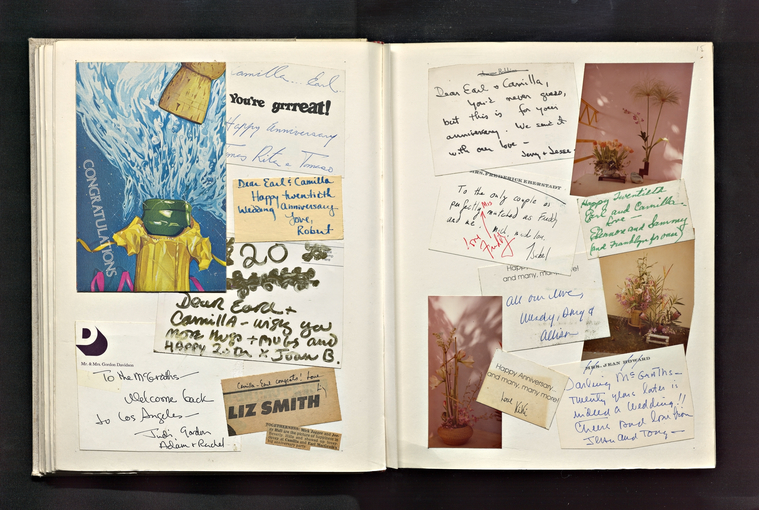 CONGRATULATIONS
Camilla... Earl..
You're grrreat!
Happy Anniversary
Rita &
Dear Earl & Camilla
Happy twentieth
Wedding anniversary
Love,
Robert
20
Dear Earl +
Camilla - wishing you
more Hugs + Mugs and
HAPPY 20. Dr. X Joan B.
Mr. & Mrs. Gordon Davidson
To the McGraths -
Welcome back
to Los Angeles -
Judi, Gordon
Adam + Rachel
Camilla - Earl congrats! Love
Liz
LIZ SMITH
TOGETHERNESS: Mick Jagger and
15
Dear Earl & Camilla,
you'd never guess,
but this is for your
anniversary. We sent it
with our love -
Jerry + Jesse
MRS. FREDERICK EBERSTADT
To the only couple as
perfectly matched as Freddy
and me.
much much love,
Isabel
Happy Twentieth
Earl and Camilla
Love -
Eleanore and Sammy
(and Franklyn for once)
Happy
and many, many more!
All our love,
Wendy, Doug &
Allison
Happy Anniversary
and many, many more!
Love Kiki
MRS. JEAN HOWARD
Darling McGraths -
Twenty years later is
indeed a Wedding!!
Cheers and love from
Jean and Tony -